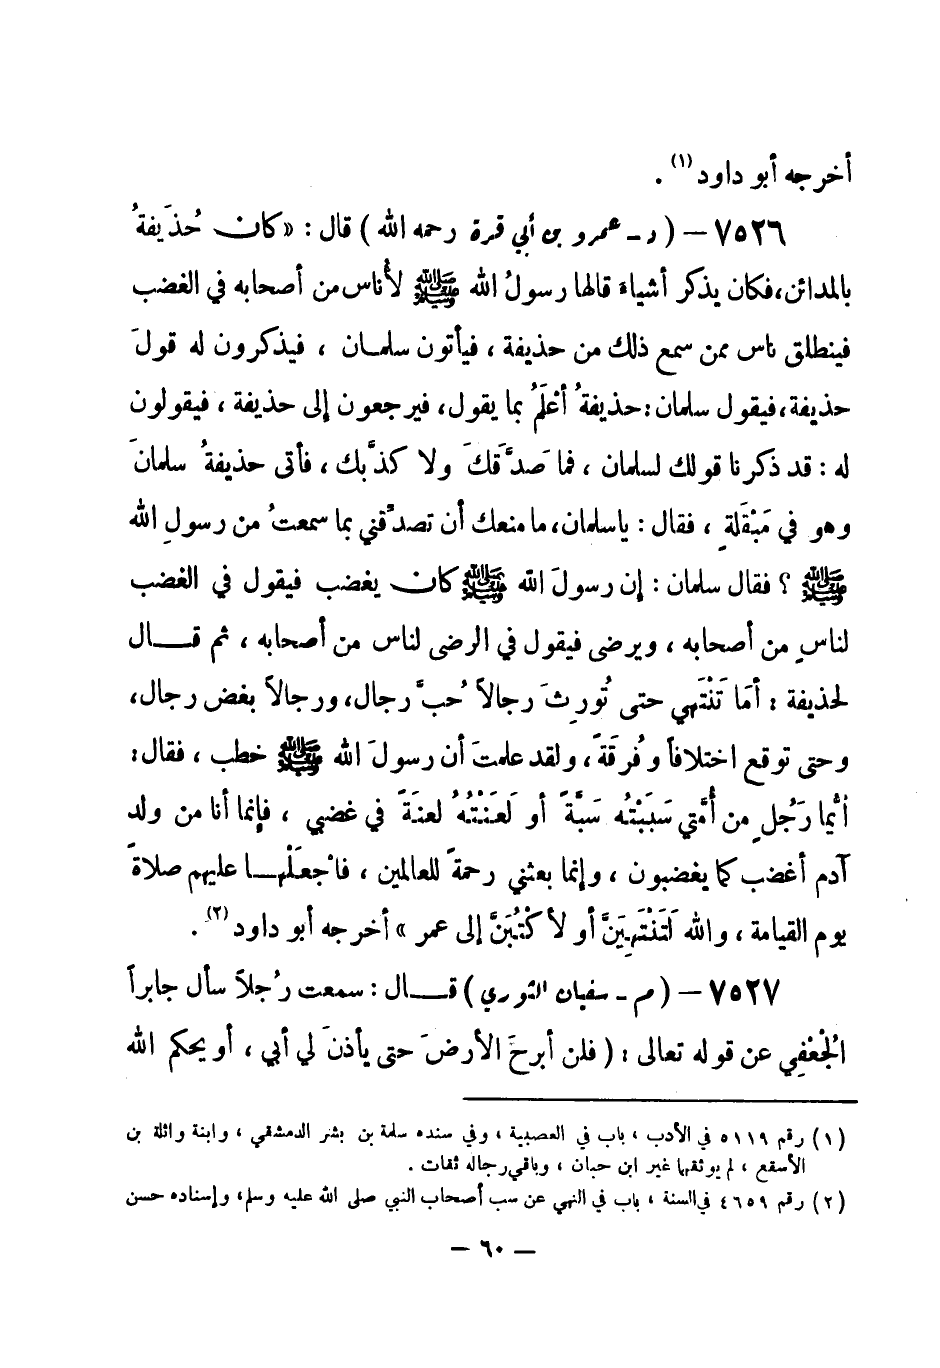 أخرجه أبو داود (١) .
٧٥٢٦ – ( د - عمرو بن أبي قرة رحمه الله ) قال : « كان حُذَيفةُ
بالمدائن، فكان يذكر أشياءَ قالها رسولُ الله ﷺ لأُناس من أصحابه في الغضب
فينطلق ناس ممن سمع ذلك من حذيفة ، فيأتون سلمان ، فيذكرون له قولَ
حذيفة، فيقول سلمان : حذيفةُ أعْلَمُ بما يقول، فيرجعون إلى حذيفة ، فيقولون
له : قد ذكرنا قولك لسلمان ، فما صَدَّقَكَ ولا كذَّبك ، فأتى حذيفةُ سلمانَ
وهو في مَبْقَلَةٍ ، فقال : يا سلمان، ما منعك أن تصدِّقني بما سمعتُ من رسولِ الله
ﷺ ؟ فقال سلمان : إن رسولَ الله ﷺ كان يغضب فيقول في الغضب
لناسٍ من أصحابه ، ويرضى فيقول في الرضى لناس من أصحابه ، ثم قال
لحذيفة : أمَا تَنْتَهي حتى تُورِثَ رجالاً حُبَّ رجال، ورجالاً بغض رجال،
وحتى توقع اختلافاً وفُرقَةً، ولقد علمتَ أن رسولَ الله ﷺ خطب ، فقال :
أيُّما رَجُلٍ من أُمَّتي سَبَبْتُه سَبَّةً أو لَعَنْتُهُ لعنَةً في غضبي ، فإنما أنا من ولد
آدم أغضب كما يغضبون ، وإنما بعثني رحمةً للعالمين ، فاجْعَلْها عليهم صلاةً
يوم القيامة ، والله لَتَنْتَهِيَنَّ أو لأكْتُبَنَّ إلى عمر » أخرجه أبو داود (٢) .
٧٥٢٧ – ( م - سفيان الثوري ) قال : سمعت رُجلاً سأل جابراً
الجُعْفِي عن قوله تعالى : ( فلن أبرحَ الأرضَ حتى يأذنَ لي أبي ، أو يحكم الله
(١) رقم ٥١١٩ في الأدب ، باب في العصبية ، وفي سنده سلمة بن بشر الدمشقي ، وابنة واثلة بن
الأسقع ، لم يوثقها غير ابن حبان ، وباقي رجاله ثقات .
(٢) رقم ٤٦٥٩ في السنة ، باب في النهي عن سب أصحاب النبي صلى الله عليه وسلم، وإسناده حسن
– ٦٠ –